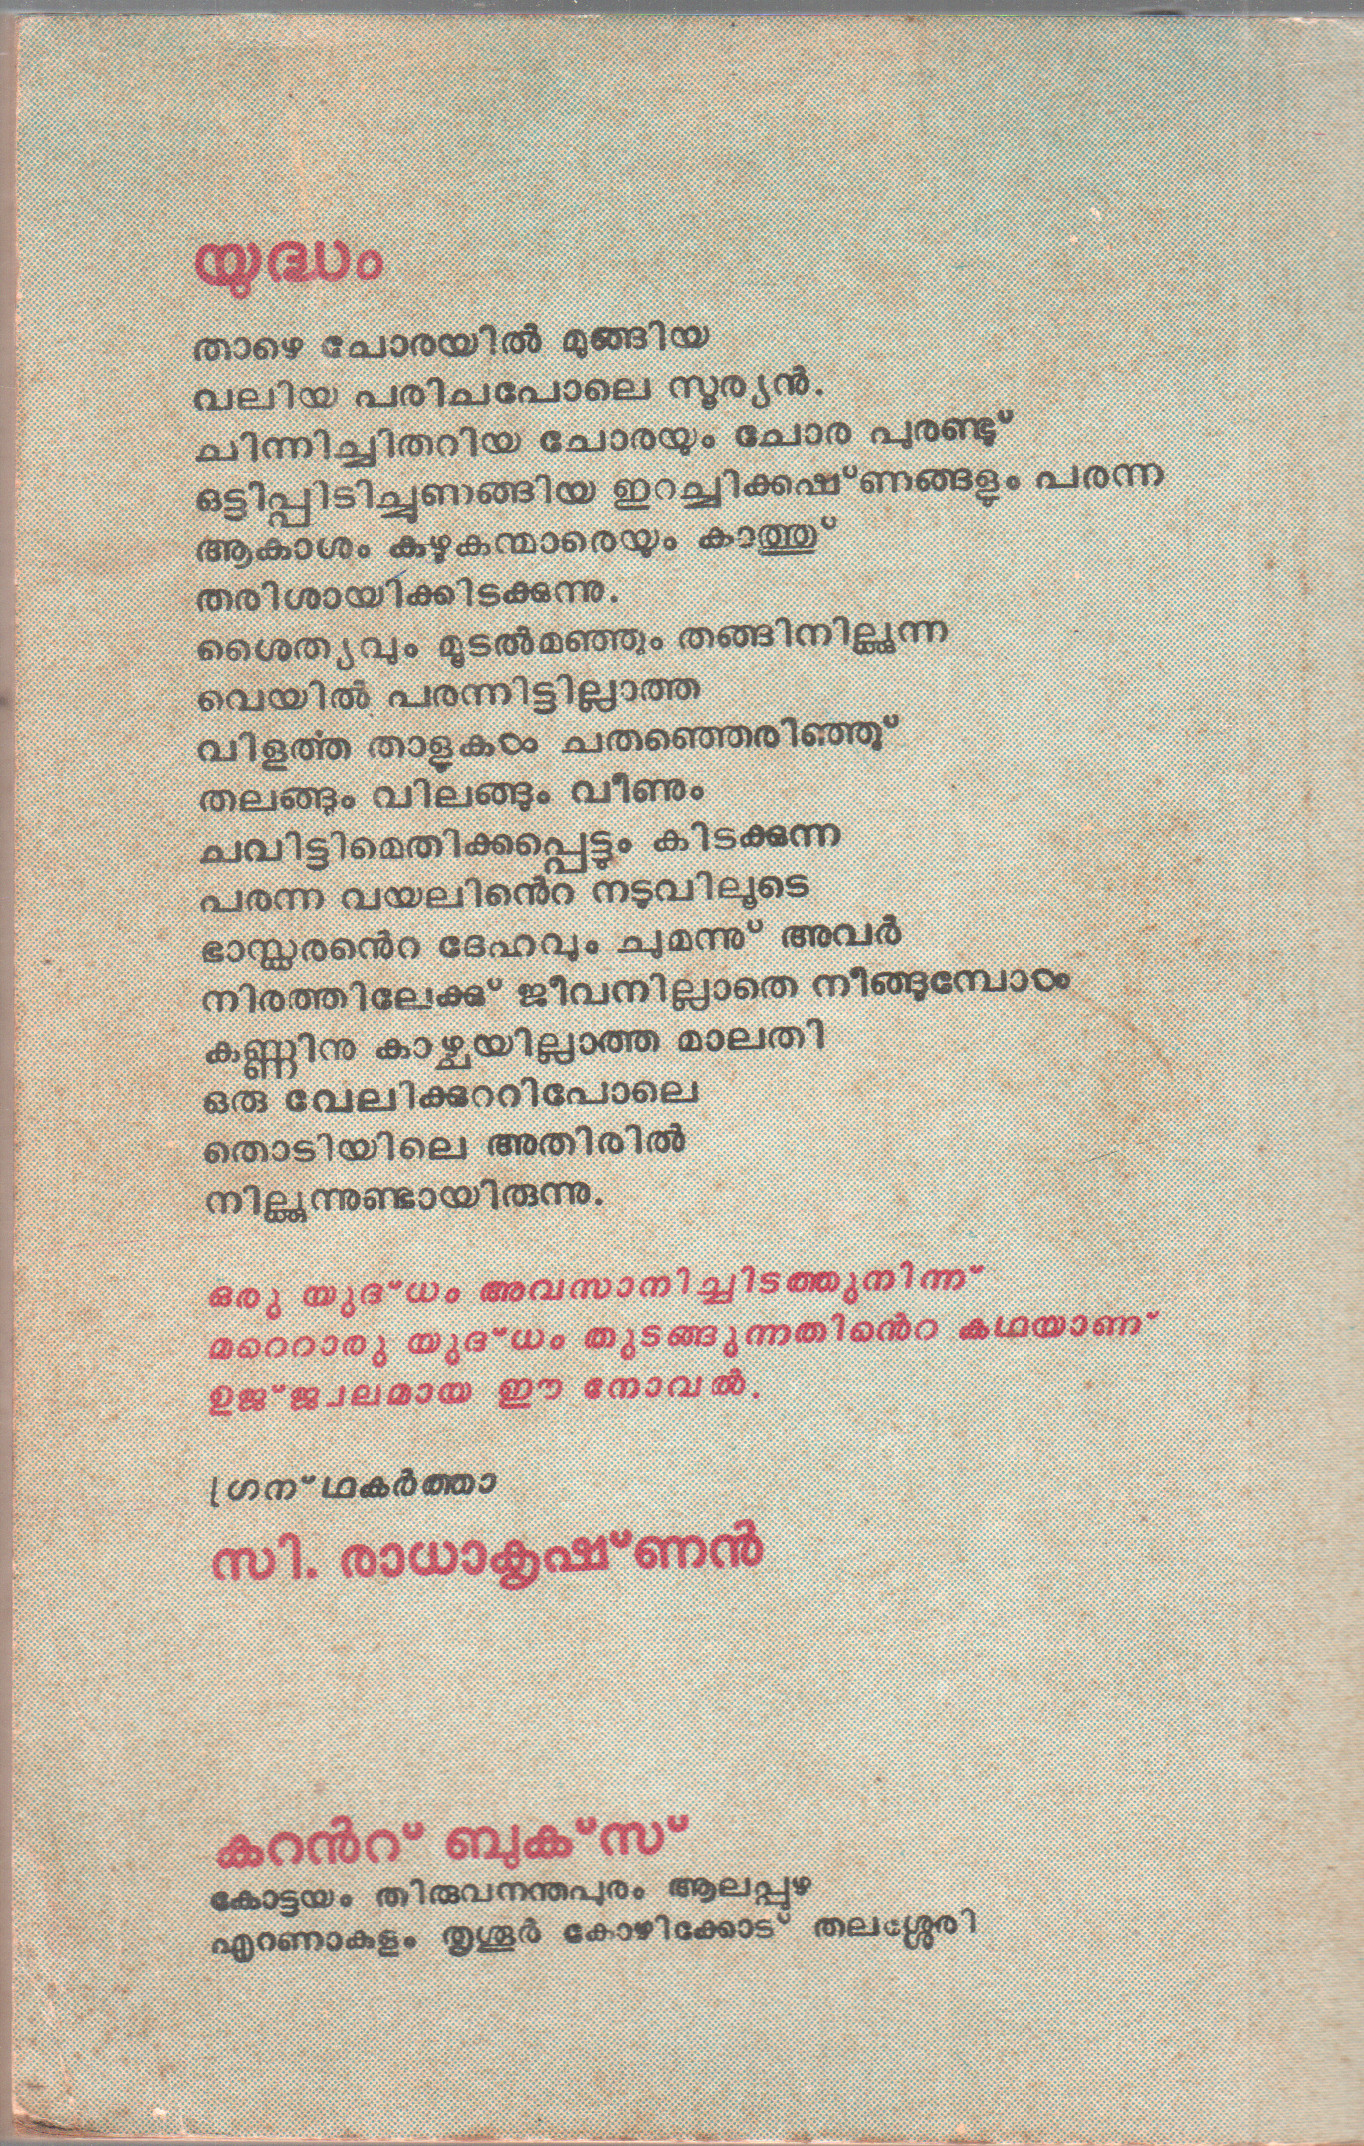 യുദ്ധം
താഴെ ചോരയിൽ മുങ്ങിയ
വലിയ പരിചപോലെ സൂര്യൻ.
ചിന്നിച്ചിതറിയ ചോരയും ചോര പുരണ്ടു്
ഒട്ടിപ്പിടിച്ചുണങ്ങിയ ഇറച്ചിക്കഷ്ണങ്ങളും പരന്ന
ആകാശം കഴുകന്മാരെയും കാത്തു്
തരിശായിക്കിടക്കുന്നു.
ശൈത്യവും മൂടൽമഞ്ഞും തങ്ങിനില്ക്കുന്ന
വെയിൽ പരന്നിട്ടില്ലാത്ത
വിളൎത്ത താളുകൾ ചതഞ്ഞെരിഞ്ഞു്
തലങ്ങും വിലങ്ങും വീണും
ചവിട്ടിമെതിക്കപ്പെട്ടും കിടക്കുന്ന
പരന്ന വയലിൻെറ നടുവിലൂടെ
ഭാസ്ക്കരൻെറ ദേഹവും ചുമന്നു് അവർ
നിരത്തിലേക്കു് ജീവനില്ലാതെ നീങ്ങുമ്പോൾ
കണ്ണിനു കാഴ്ചയില്ലാത്ത മാലതി
ഒരു വേലിക്കുററിപോലെ
തൊടിയിലെ അതിരിൽ
നില്ക്കുന്നുണ്ടായിരുന്നു.
ഒരു യുദ്ധം അവസാനിച്ചിടത്തുനിന്ന്
മറെറാരു യുദ്ധം തുടങ്ങുന്നതിൻെറ കഥയാണ്
ഉജ്ജ്വലമായ ഈ നോവൽ.
ഗ്രന്ഥകർത്താ
സി. രാധാകൃഷ്ണൻ
കറൻറ് ബുക്സ്
കോട്ടയം തിരുവനന്തപുരം ആലപ്പുഴ
എറണാകുളം തൃശൂർ കോഴിക്കോട് തലശ്ശേരി